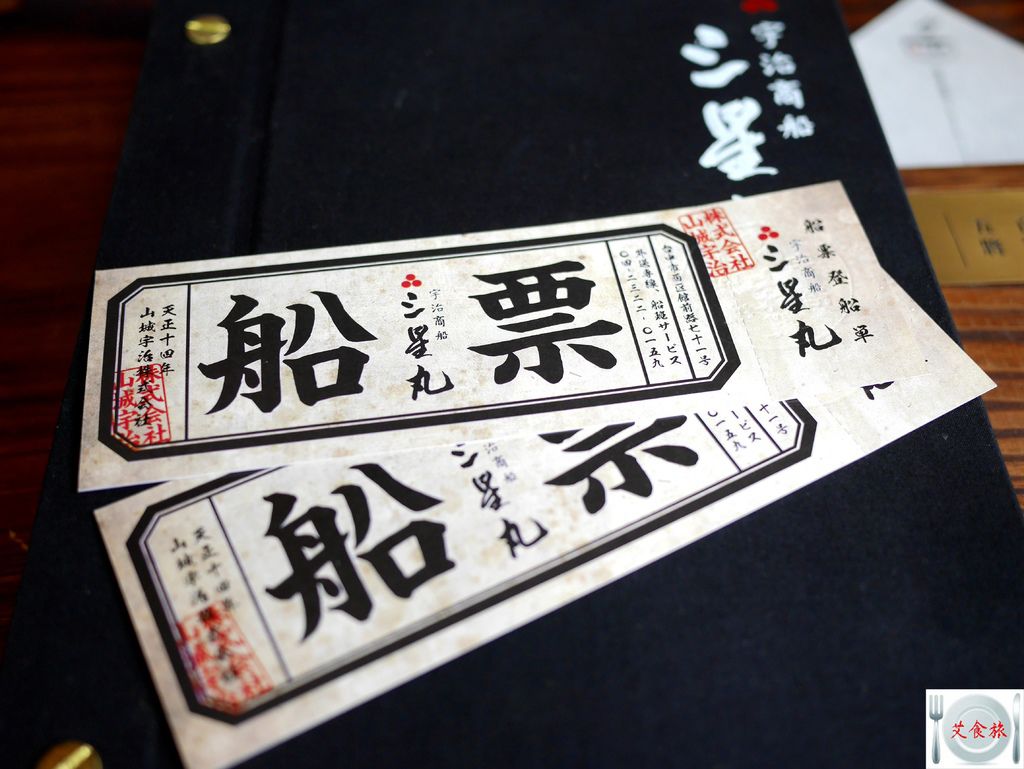 宇治商船
三星
株式会社
山城宇治
船票登船單
宇治商船
三星丸
台中市西區館前路七十一号
外送專線、船班サービス
〇四-二三二二-〇一五九
票
宇治商船
三星丸
船
天正十四年
山城宇治株式会社
株式会社
山城宇治
十一号
ービス
〇一五九
票
宇治商船
三星丸
船
天正十四年
山城宇治株式会社
株式会社
山城宇治
艾食旅